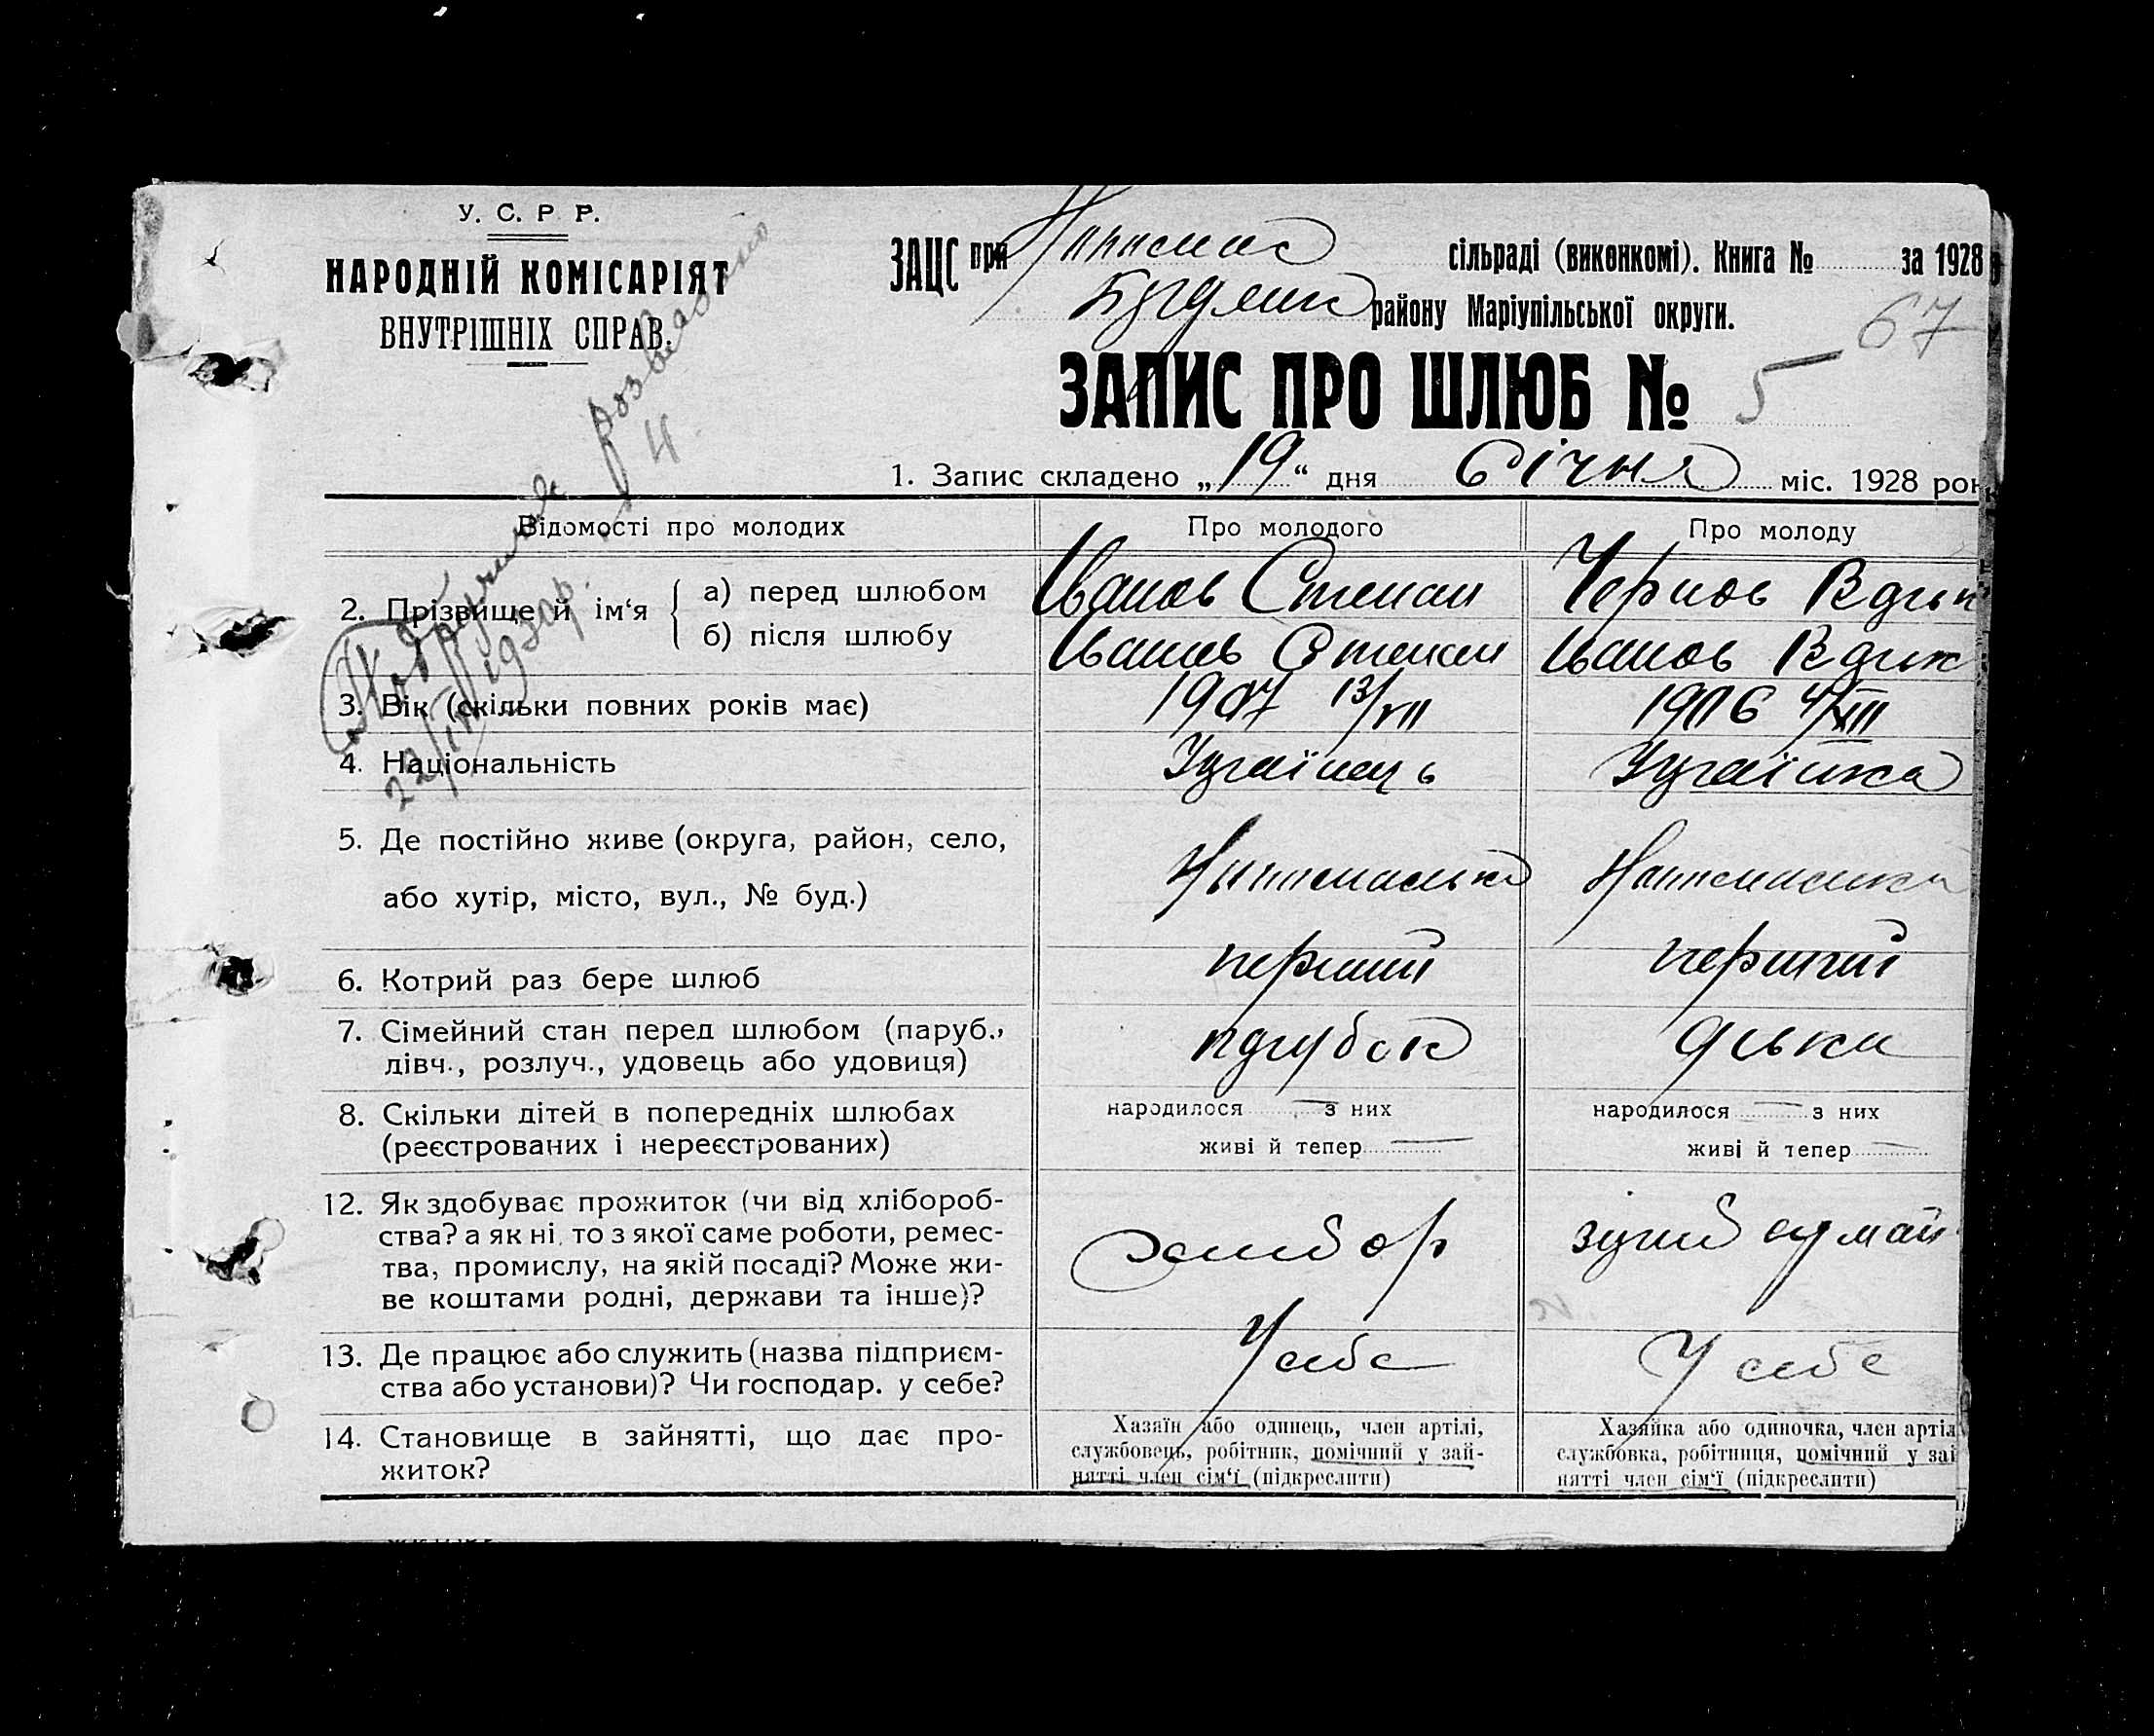 У. С. Р. Р.
НАРОДНІЙ КОМІСАРІЯТ
ВНУТРІШНІХ СПРАВ.
ЗАЦС при сільраді (виконкомі). Книга № за 1928
району Маріупільської округи.
67
ЗАПИС ПРО ШЛЮБ № 5
1. Запис складено „19“ дня січня міс. 1928 рок
розведено
Відомості про молодих Про молодого Про молоду
2. Прізвище й ім‘я
а) перед шлюбом Іванов Степан Чернов
б) після шлюбу Іванов Степан Іванов
3. Вік (скільки повних років має) 1907 13/VII 1906
4. Національність
5. Де постійно живе (округа, район, село,
або хутір, місто, вул., № буд.)
6. Котрий раз бере шлюб перший перший
7. Сімейний стан перед шлюбом (паруб.,
дівч., розлуч., удовець або удовиця) парубок дівка
8. Скільки дітей в попередніх шлюбах
(реєстрованих і нереєстрованих)
народилося — з них
живі й тепер —
народилося — з них
живі й тепер —
12. Як здобуває прожиток (чи від хлібороб-
ства? а як ні, то з якої саме роботи, ремес-
тва, промислу, на якій посаді? Може жи-
ве коштами родні, держави та інше)?
13. Де працює або служить (назва підприєм-
ства або установи)? Чи господар. у себе?
У себе У себе
14. Становище в зайнятті, що дає про-
житок?
Хазяїн або одинець, член артілі,
службовець, робітник, помічний у зай-
нятті член сім‘ї (підкреслити)
Хазяйка або одиночка, член артіл
службовка, робітниця, помічний у зай
нятті член сім‘ї (підкреслити)